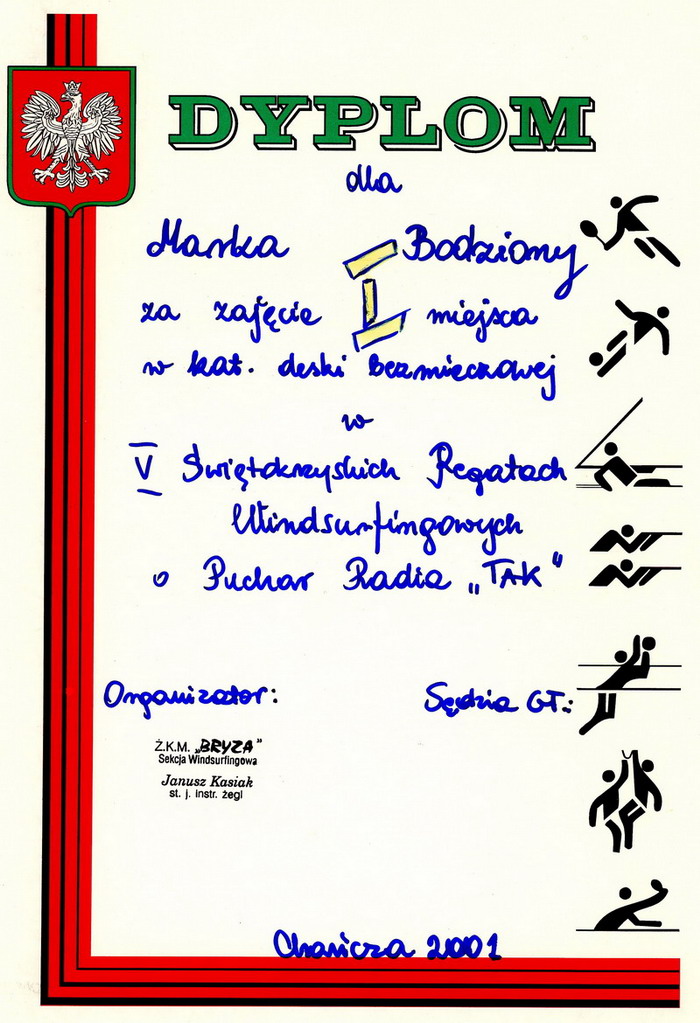 DYPLOM
dla
Marka Bodziony
za zajęcie I miejsca
w kat. deski bezmieczowej
w
V Świętokrzyskich Regatach
Windsurfingowych
o Puchar Radia „TAK”
Organizator: Sędzia GŁ.:
Ż.K.M. „BRYZA”
Sekcja Windsurfingowa
Janusz Kasiak
st. j. instr. żegl
Chańcza 2001